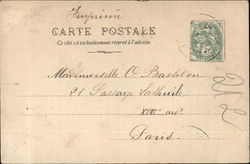 Imprimé
CARTE POSTALE
Ce côté est exclusivement réservé à l'adresse.
Mademoiselle
21 Passage
XVIIIe arrt
Paris